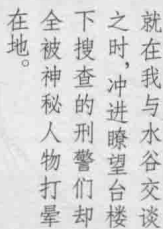 就在我与水谷交谈
之时，冲进瞭望台楼
下搜查的刑警们却
全被神秘人物打晕
在地。